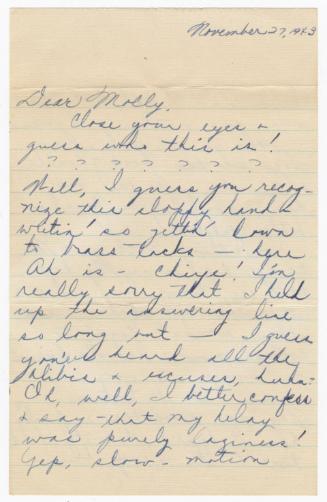 November 27, 1943
Dear Molly,
Close your eyes &
guess who this is!
? ? ? ? ? ? ? ?
Well, I guess you recog-
nize this sloppy hand-
writin' so gettin' down
to brass-tacks — here
Ah is - Chiye! I'm
really sorry that I held
up the answering line
so long but — I guess
you've heard all the
alibis & excuses, huh?
Oh, well, I better confess
& say - that my delay
was purely laziness!
Yep, slow - motion